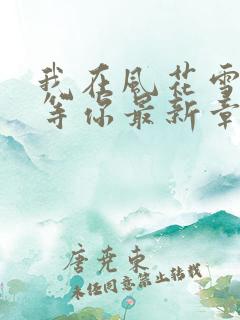 我在风花雪
等你最新章
唐尧东
未经同意禁止转载